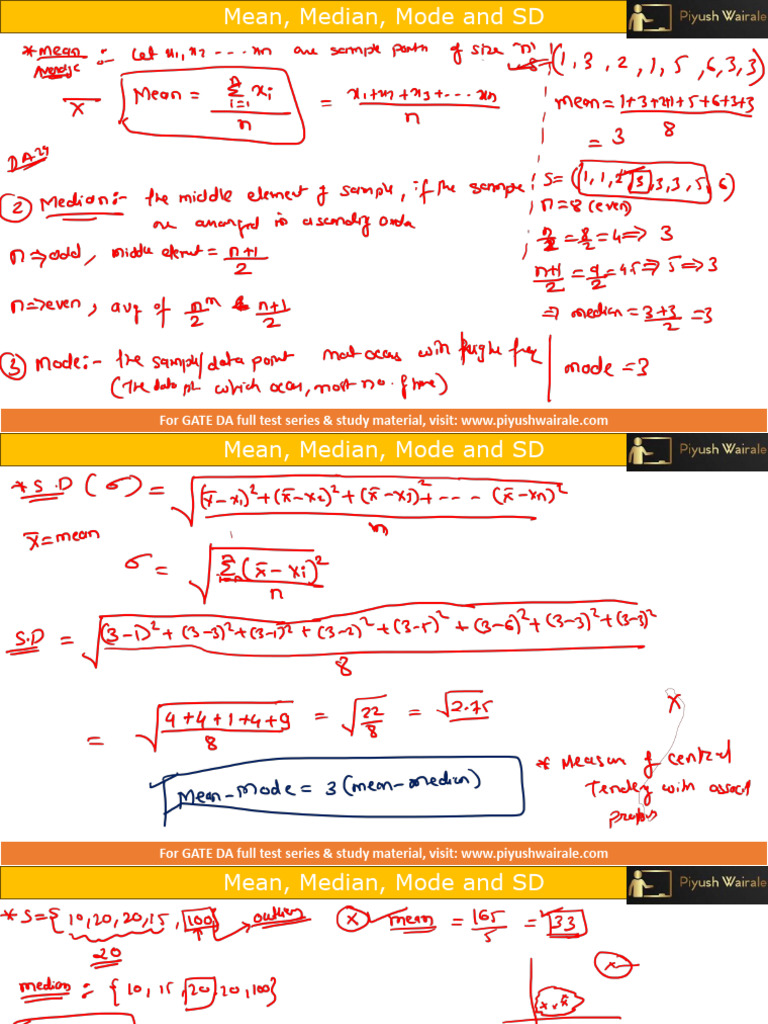 Mean, Median, Mode and SD
Piyush Wairale
* Mean :- Let x₁, x₂ ---- xn are sample points of size 'n'
Average
x̄ Mean = Σ(i=1 to n) xi / n = x₁+x₂+x₃+---xn / n
(1, 3, 2, 1, 5, 6, 3, 3)
mean = 1+3+2+1+5+6+3+3 / 8
= 3
DA24
S = (1, 1, 2, 3, 3, 3, 5, 6)
② Median:- The middle element of sample, if the sample
are arranged in ascending order
n = 8 (even)
n/2 = 8/2 = 4 ⇒ 3
n ⇒ odd, middle element = n+1 / 2
n+1 / 2 = 9/2 = 4.5 ⇒ 5 ⇒ 3
n ⇒ even, avg of n/2 & n+1 / 2
⇒ median = 3+3 / 2 = 3
③ Mode:- the sample/data point that occurs with freq
(The data pt which occurs, most no. of time)
mode = 3
For GATE DA full test series & study material, visit: www.piyushwairale.com
Mean, Median, Mode and SD
Piyush Wairale
* S.D (σ) = √((x̄-x₁)² + (x̄-x₂)² + (x̄-x₃)² + --- - (x̄-xn)² / n)
x̄ = mean
σ = √(Σ(x̄ - xi)² / n)
S.D = √((3-1)² + (3-3)² + (3-1)² + (3-2)² + (3-5)² + (3-6)² + (3-3)² + (3-3)² / 8)
= √(4+4+1+4+9 / 8) = √(22/8) = √2.75
x
Mean-Mode = 3 (mean-median)
* Measure of central
Tendency with
For GATE DA full test series & study material, visit: www.piyushwairale.com
Mean, Median, Mode and SD
Piyush Wairale
* S = {10, 20, 20, 15, 100} → outlier
20
x mean = 165/5 = 33
x
median : {10, 15, 20, 20, 100}
x, x̄